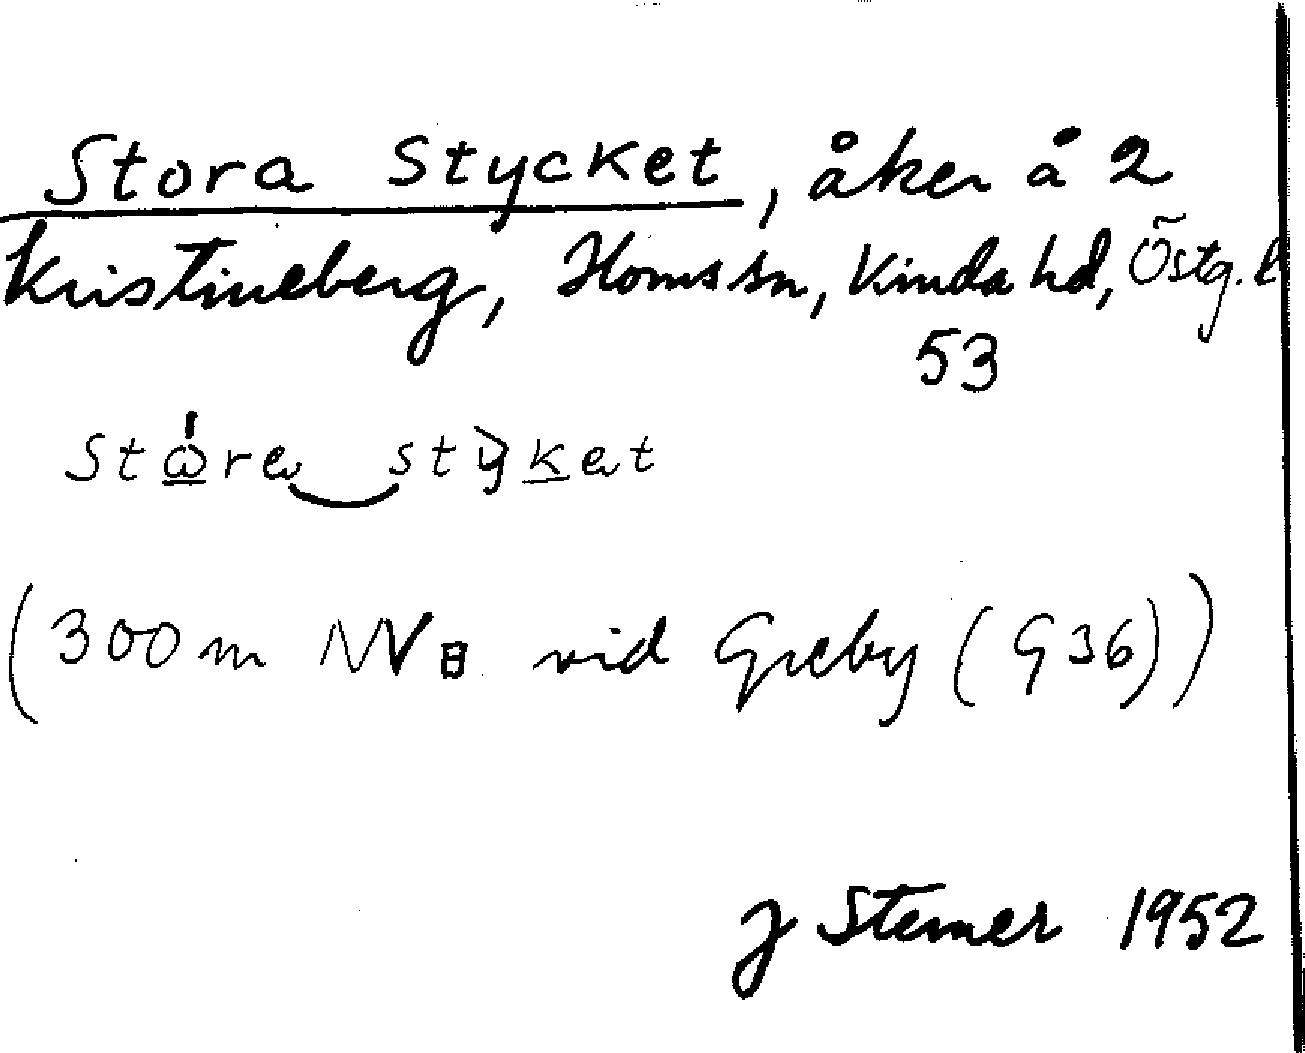 Stora Stycket, åker å 2
Kristineberg, Horns sn, Kinda hd, Östg. l
53
(300 m NV vid Greby (936))
J Stemer 1952